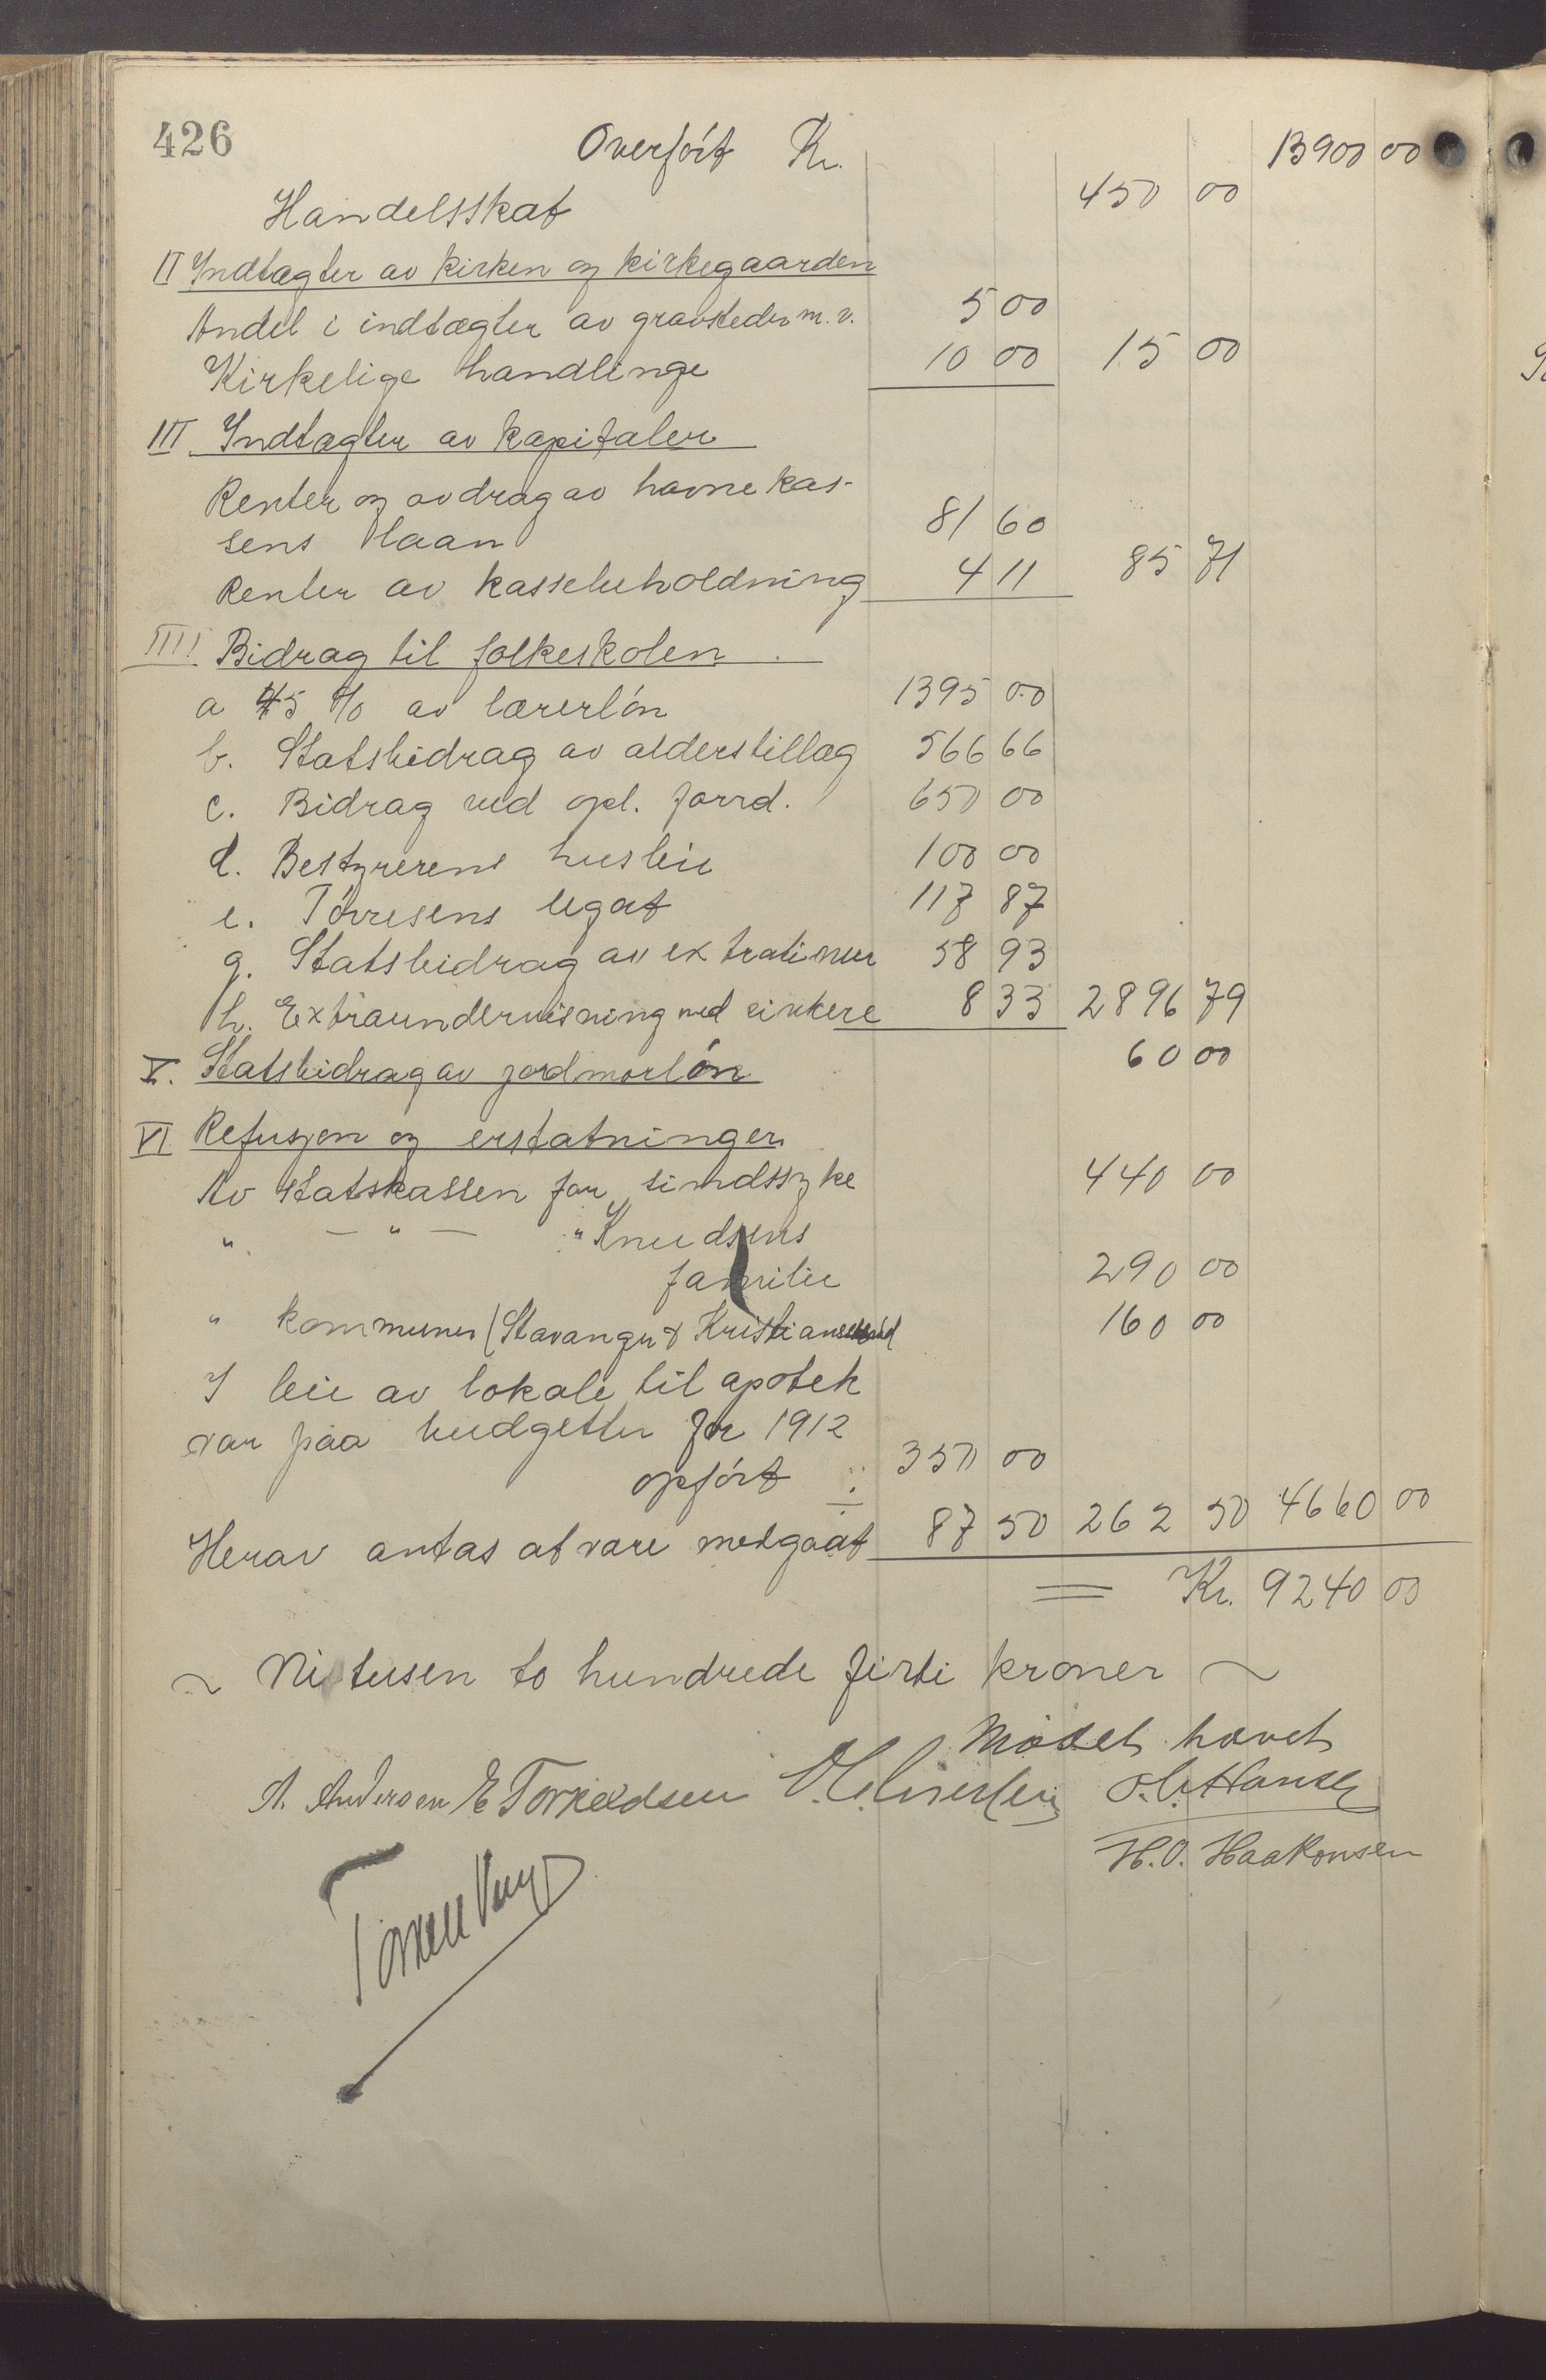 426
Overført Kr. 13900 00
Handelsskat 450 00
II Indtægter av kirken og kirkegaarden
Andel i indtægter av gravsteder m.v. 5 00
Kirkelige handlinge 10 00 15 00
III Indtægter av kapitaler
Renter og avdrag av havnekas-
sens laan 81 60
Renter av kassebeholdning 4 11 85 71
IIII Bidrag til folkeskolen
a 45 % av lærerløn 1395 00
b. Statsbidrag av alderstillæg 566 66
c. Bidrag ved opl. forrd. 650 00
d. Bestyrerens husleie 100 00
e. Tørresens legat 117 87
g. Statsbidrag av extratimer 58 93
h. Extraundervisning med sinkere 8 33 2896 79
V. Statsbidrag av jordmorløn 60 00
VI Refusjon og erstatninger
Av statskassen for sindssyke 440 00
" — " — " Knudsens
familie 290 00
" kommuner (Stavanger & Kristianssund 160 00
I leie av lokale til apotek
var paa budgetter for 1912
opført 350 00
Herav antas at være medgaat 87 50 262 50 4660 00
= Kr. 9240 00
~ Ni tusen to hundrede firti kroner ~
Mødet hævet
A. Andersen E Torkeldsen O. C. Iversen O. C. Hansen
H.O. Haakonsen